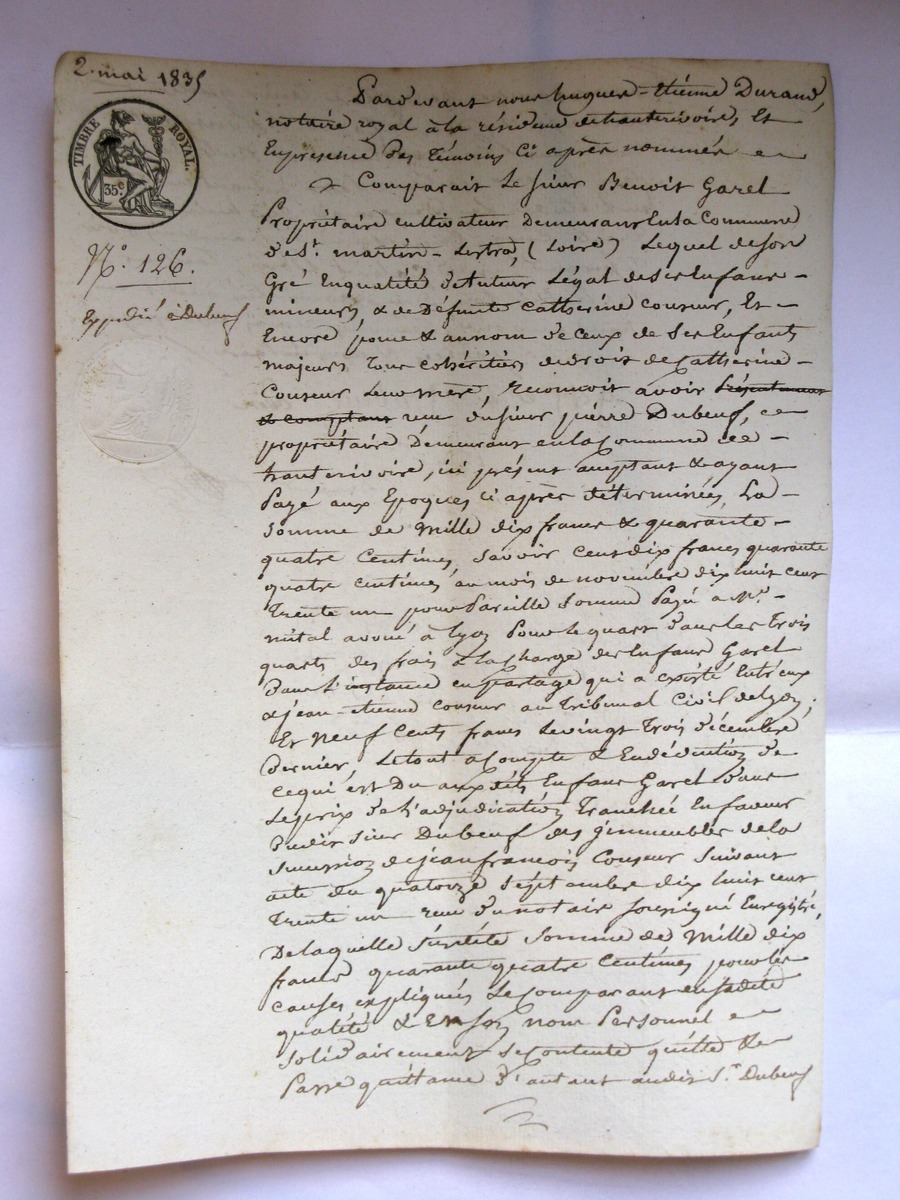 2. mai 1835
TIMBRE ROYAL.
35c
N.º 126.
Expédié à Dubeuf
Pardevant nous hugues-Etienne Durand,
notaire royal à la résidence de hauterivoire, Et
En présence des témoins ci après nommés
Comparait Le sieur Benoit Garel
Propriétaire cultivateur Demeurant en la Commune
de St. martin-Lestra, (Loire) Lequel de son
Gré En qualité de tuteur Légal de ses Enfans
mineurs, & de Défunte Catherine Couseur, Et
Encore pour & au nom de ceux de ses Enfants
majeurs tous cohéritiers de droit de Catherine
Couseur Leur mère, reconnoit avoir présentement
& comptant reçu du sieur pierre Dubeuf,
propriétaire demeurant en la Commune de
hauterivoire, ici présent acceptant & ayant
Payé aux Epoques ci après déterminées, La
Somme de Mille dix francs & quarante
quatre Centimes, Savoir Cent dix francs quarante
quatre centimes, au mois de novembre dix huit cent
Trente un pour Pareille Somme Payé a Mr.
mital avoué à Lyon Pour le quart dans les trois
quarts des frais à La Charge des Enfans Garel
Dans L'instance en partage qui a existé Entr'eux
& jean-etienne Couseur au Tribunal Civil de Lyon;
Et Neuf Cents francs Le vingt Trois décembre
Dernier, Le tout a Compte & En déduction de
ce qui est Du aux dits Enfans Garel Dans
Le prix de L'adjudication Tranchée En faveur
Dudit Sieur Dubeuf des immeubles de la
Succession de jean francois Couseur Suivant
acte du quatorze Septembre dix huit cent
Trente un reçu du notaire soussigné Enregistré,
De laquelle susdite Somme de Mille dix
francs quarante quatre Centimes pour les
causes expliquées Le Comparant en sadite
qualité & En son nom Personnel
Solidairement se Contente quitte &
Passe quittance d'autant audit Sr. Dubeuf